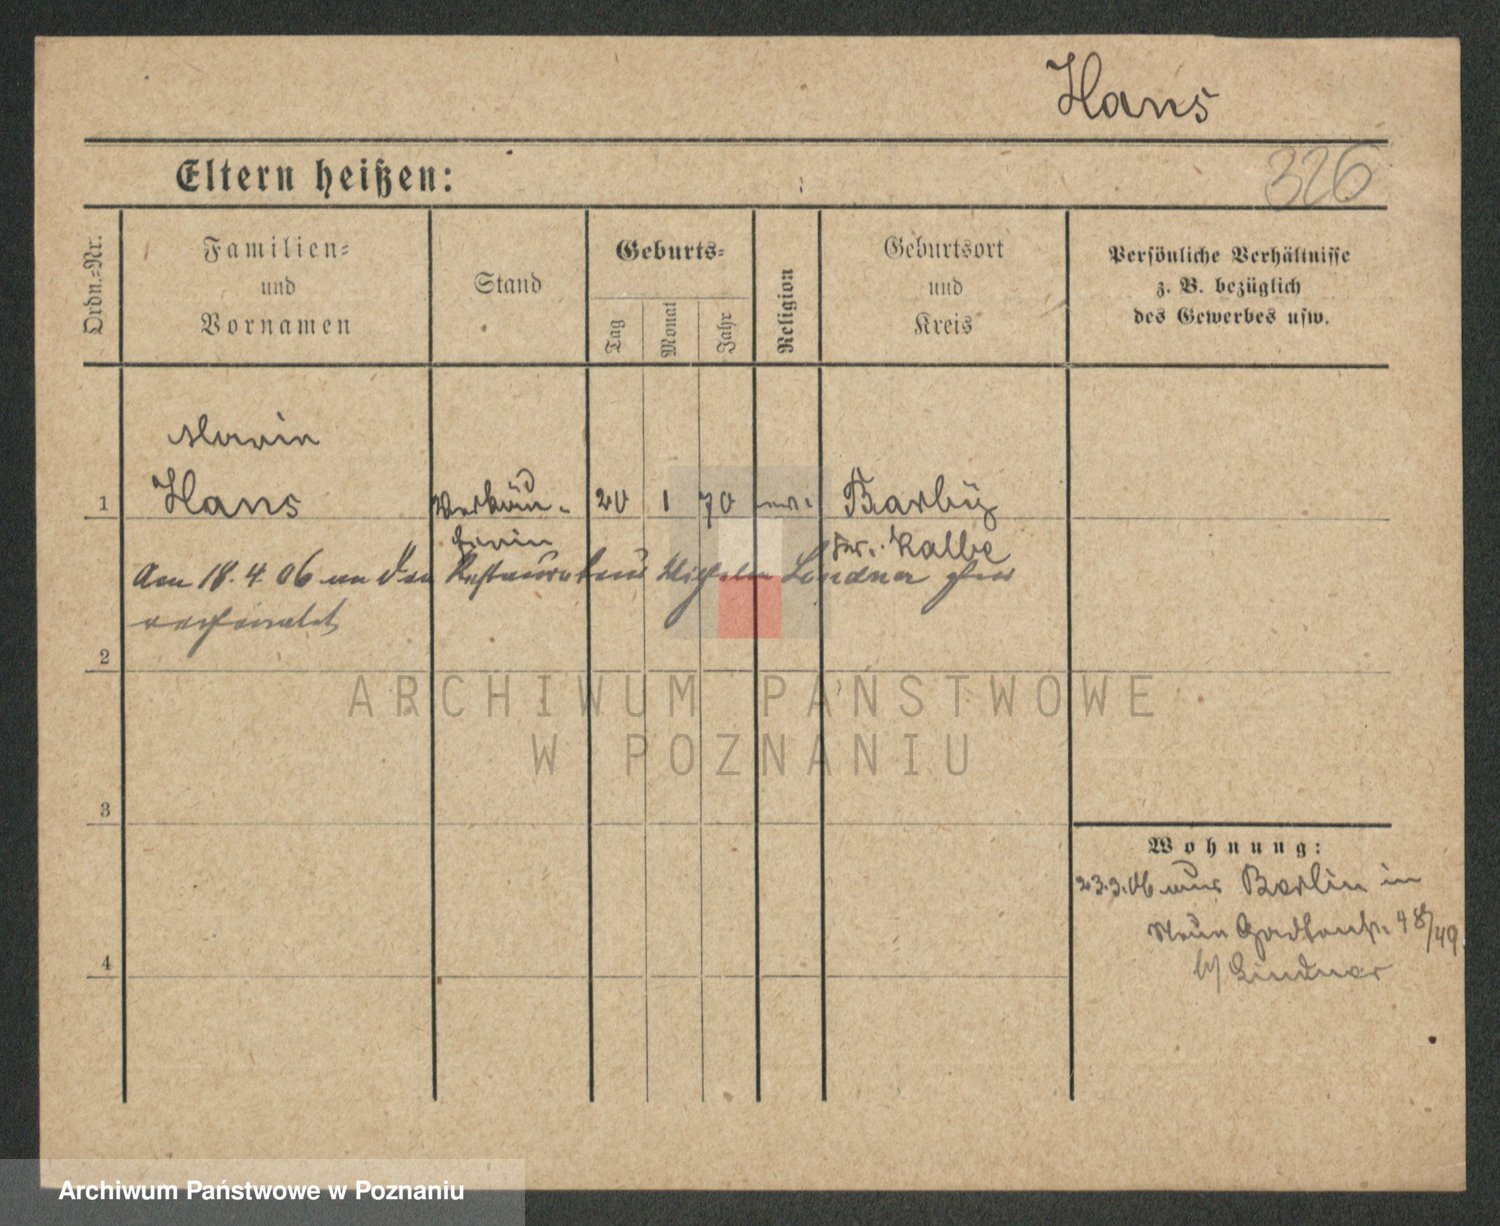 Hans
Eltern heißen:
326
Ordn.-Nr.
Familien-
und
Vornamen
Stand
Geburts-
Tag
Monat
Jahr
Religion
Geburtsort
und
Kreis
Persönliche Verhältnisse
z. B. bezüglich
des Gewerbes usw.
Marie
1 Hans Verkäu- 20 1 70 Barby
ferin Kr. Kalbe
Am 18. 4. 06 an den Restaurateur Wilhelm Lindner hier
verheiratet
2
ARCHIWUM PAŃSTWOWE
W POZNANIU
3
Wohnung:
23.3.06 aus Berlin in
Neue Gartenstr. 48/49
b/ Lindner
4
Archiwum Państwowe w Poznaniu